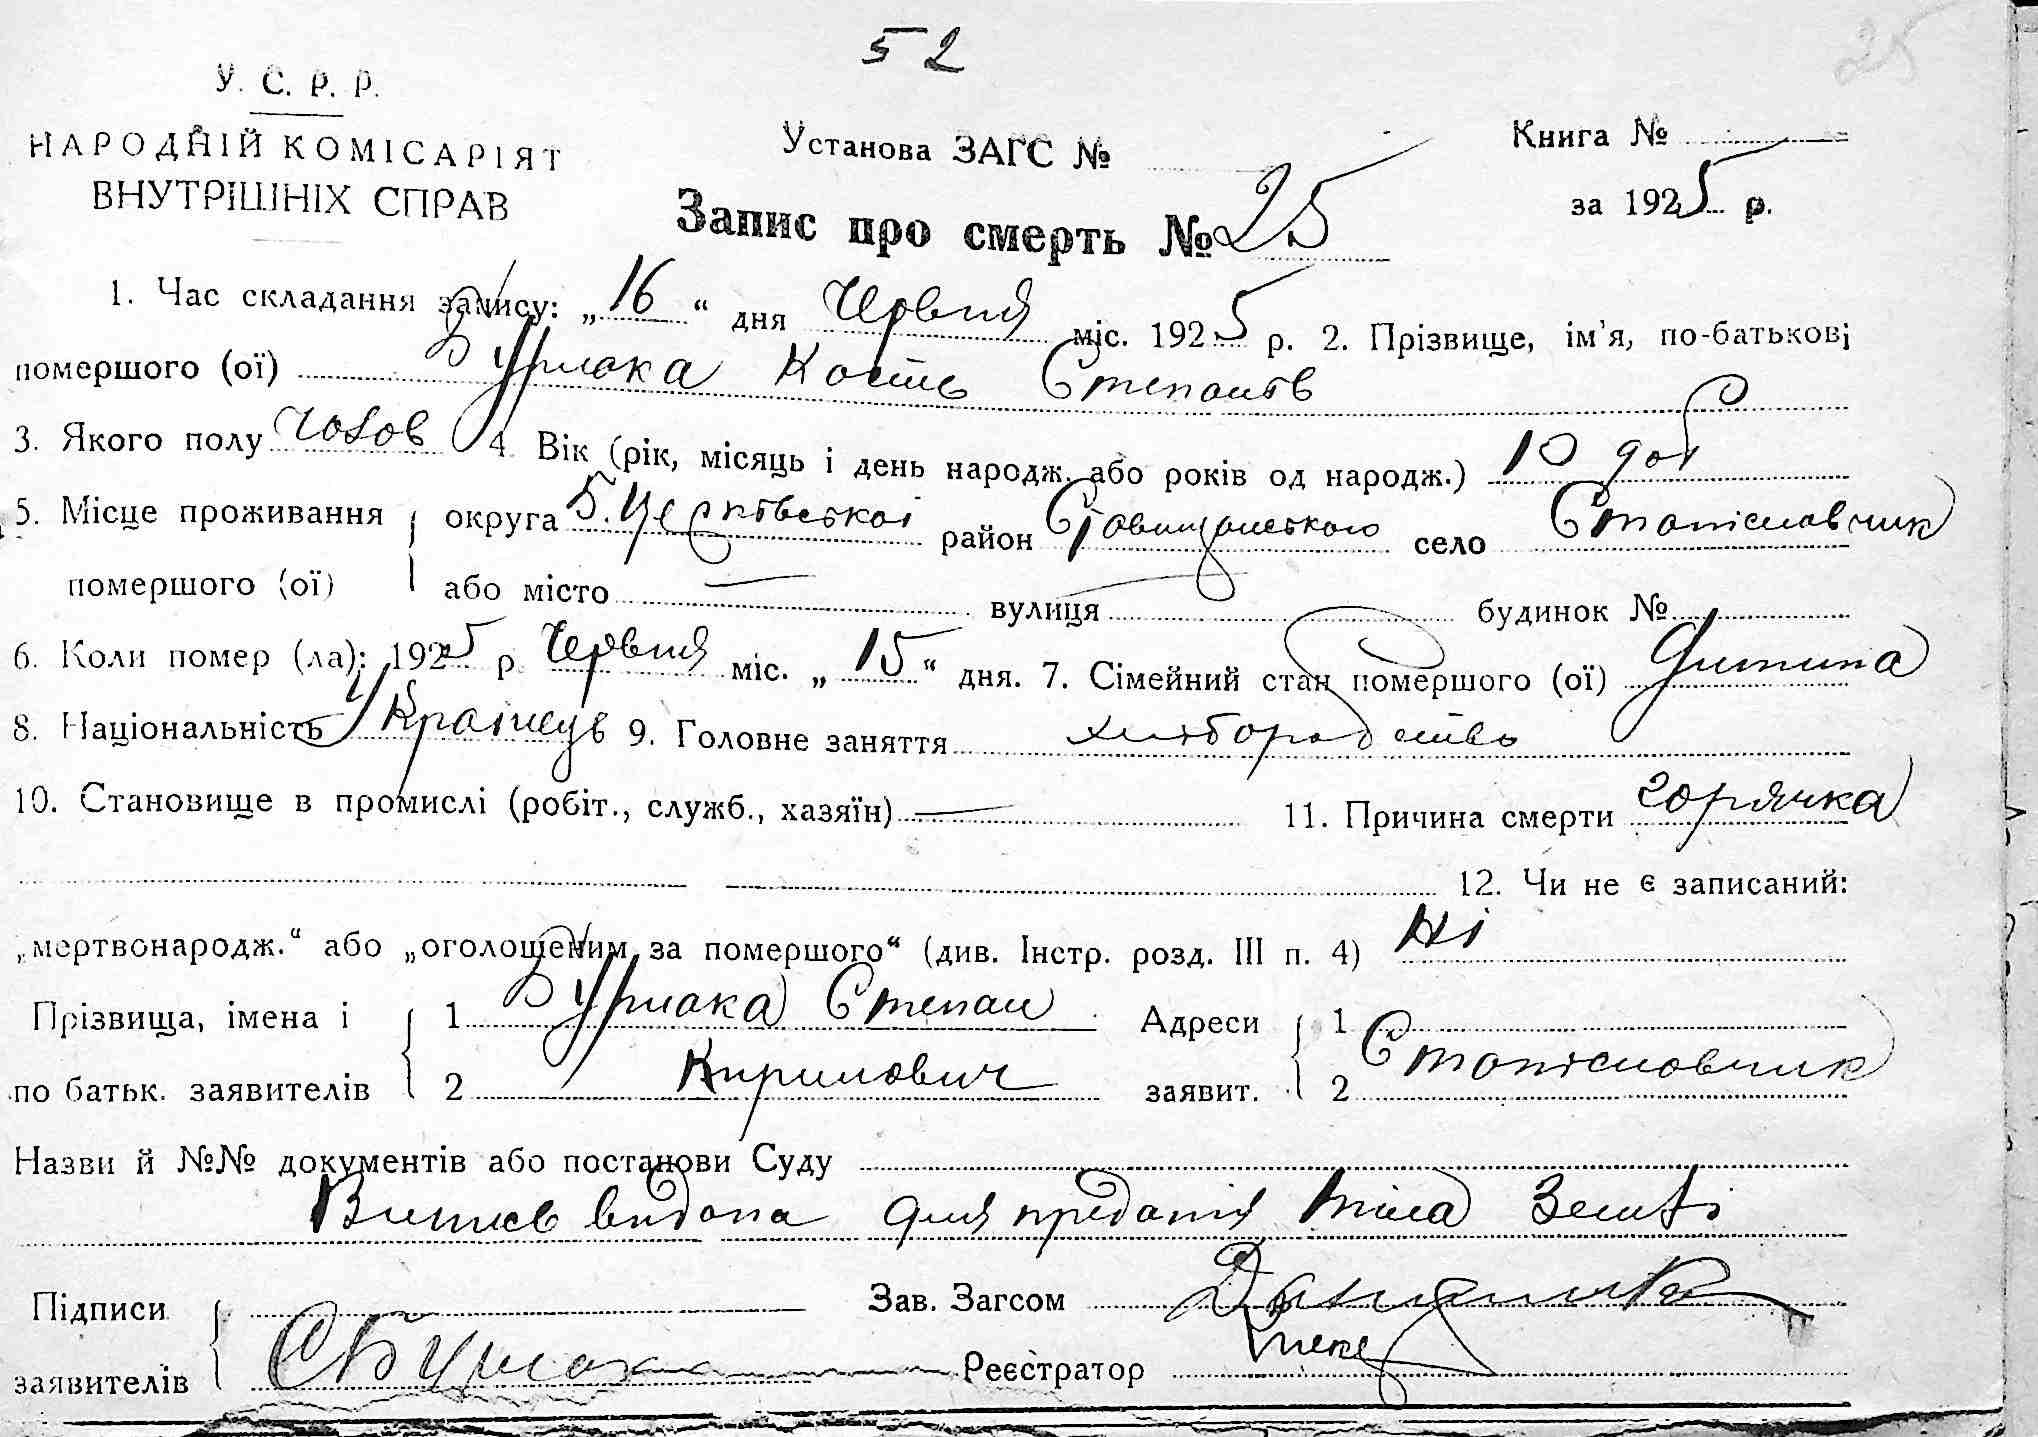 52
25
У. С. Р. Р.
НАРОДНІЙ КОМІСАРІЯТ
ВНУТРІШНІХ СПРАВ
Установа ЗАГС №
Книга №
за 1925 р.
Запис про смерть № 25
1. Час складання запису: „16“ дня Червня міс. 1925 р. 2. Прізвище, ім'я, по-батькові
помершого (ої) Бурлака Кость Степанів
3. Якого полу чолов 4. Вік (рік, місяць і день народж. або років од народж.) 10 діб
5. Місце проживання округа Б. Церківської район Ставищанського село Станіславчик
помершого (ої) або місто — вулиця — будинок №
6. Коли помер (ла): 1925 р. Червня міс. „15“ дня. 7. Сімейний стан помершого (ої) Дитина
8. Національність Українець 9. Головне заняття хліборобство
10. Становище в промислі (робіт., служб., хазяїн) — 11. Причина смерти горячка
12. Чи не є записаний:
„мертвонародж.“ або „оголошеним за помершого“ (див. Інстр. розд. III п. 4) Ні
Прізвища, імена і 1 Бурлака Степан Адреси 1 Станіславчик
по батьк. заявителів 2 Кирилович заявит. 2
Назви й №№ документів або постанови Суду
Витяг видана для преданія тіла Землі
Підписи Зав. Загсом
заявителів С Бурлака Реєстратор